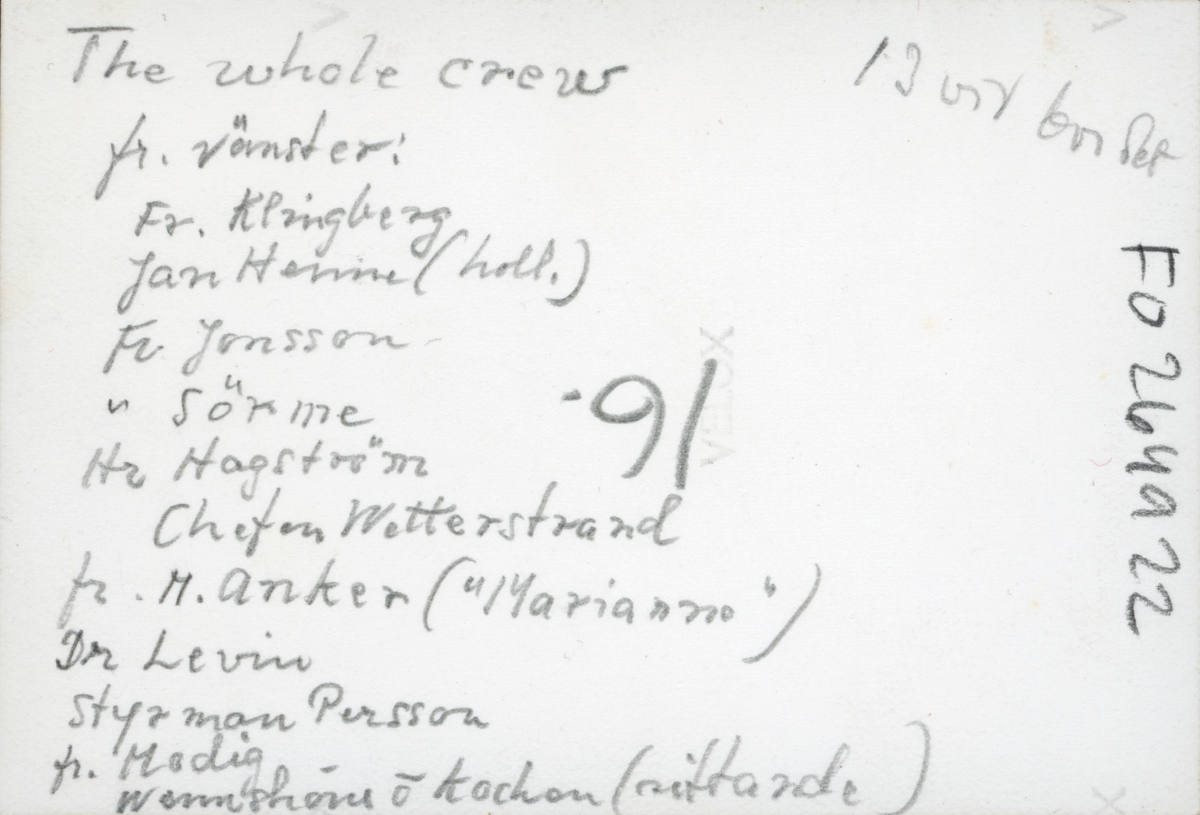 The whole crew
13 vid bordet
fr. vänster:
Fr. Klingberg
Jan Henine (holl.)
Fr Jonsson
" Sörme
Hr Hagström
Chefen Wetterstrand
fr. M. Anker ("Marianne")
Dr Levin
Styrman Persson
fr. Modig
ö Kochen (sittande)
-91
VELOX
FO264A22